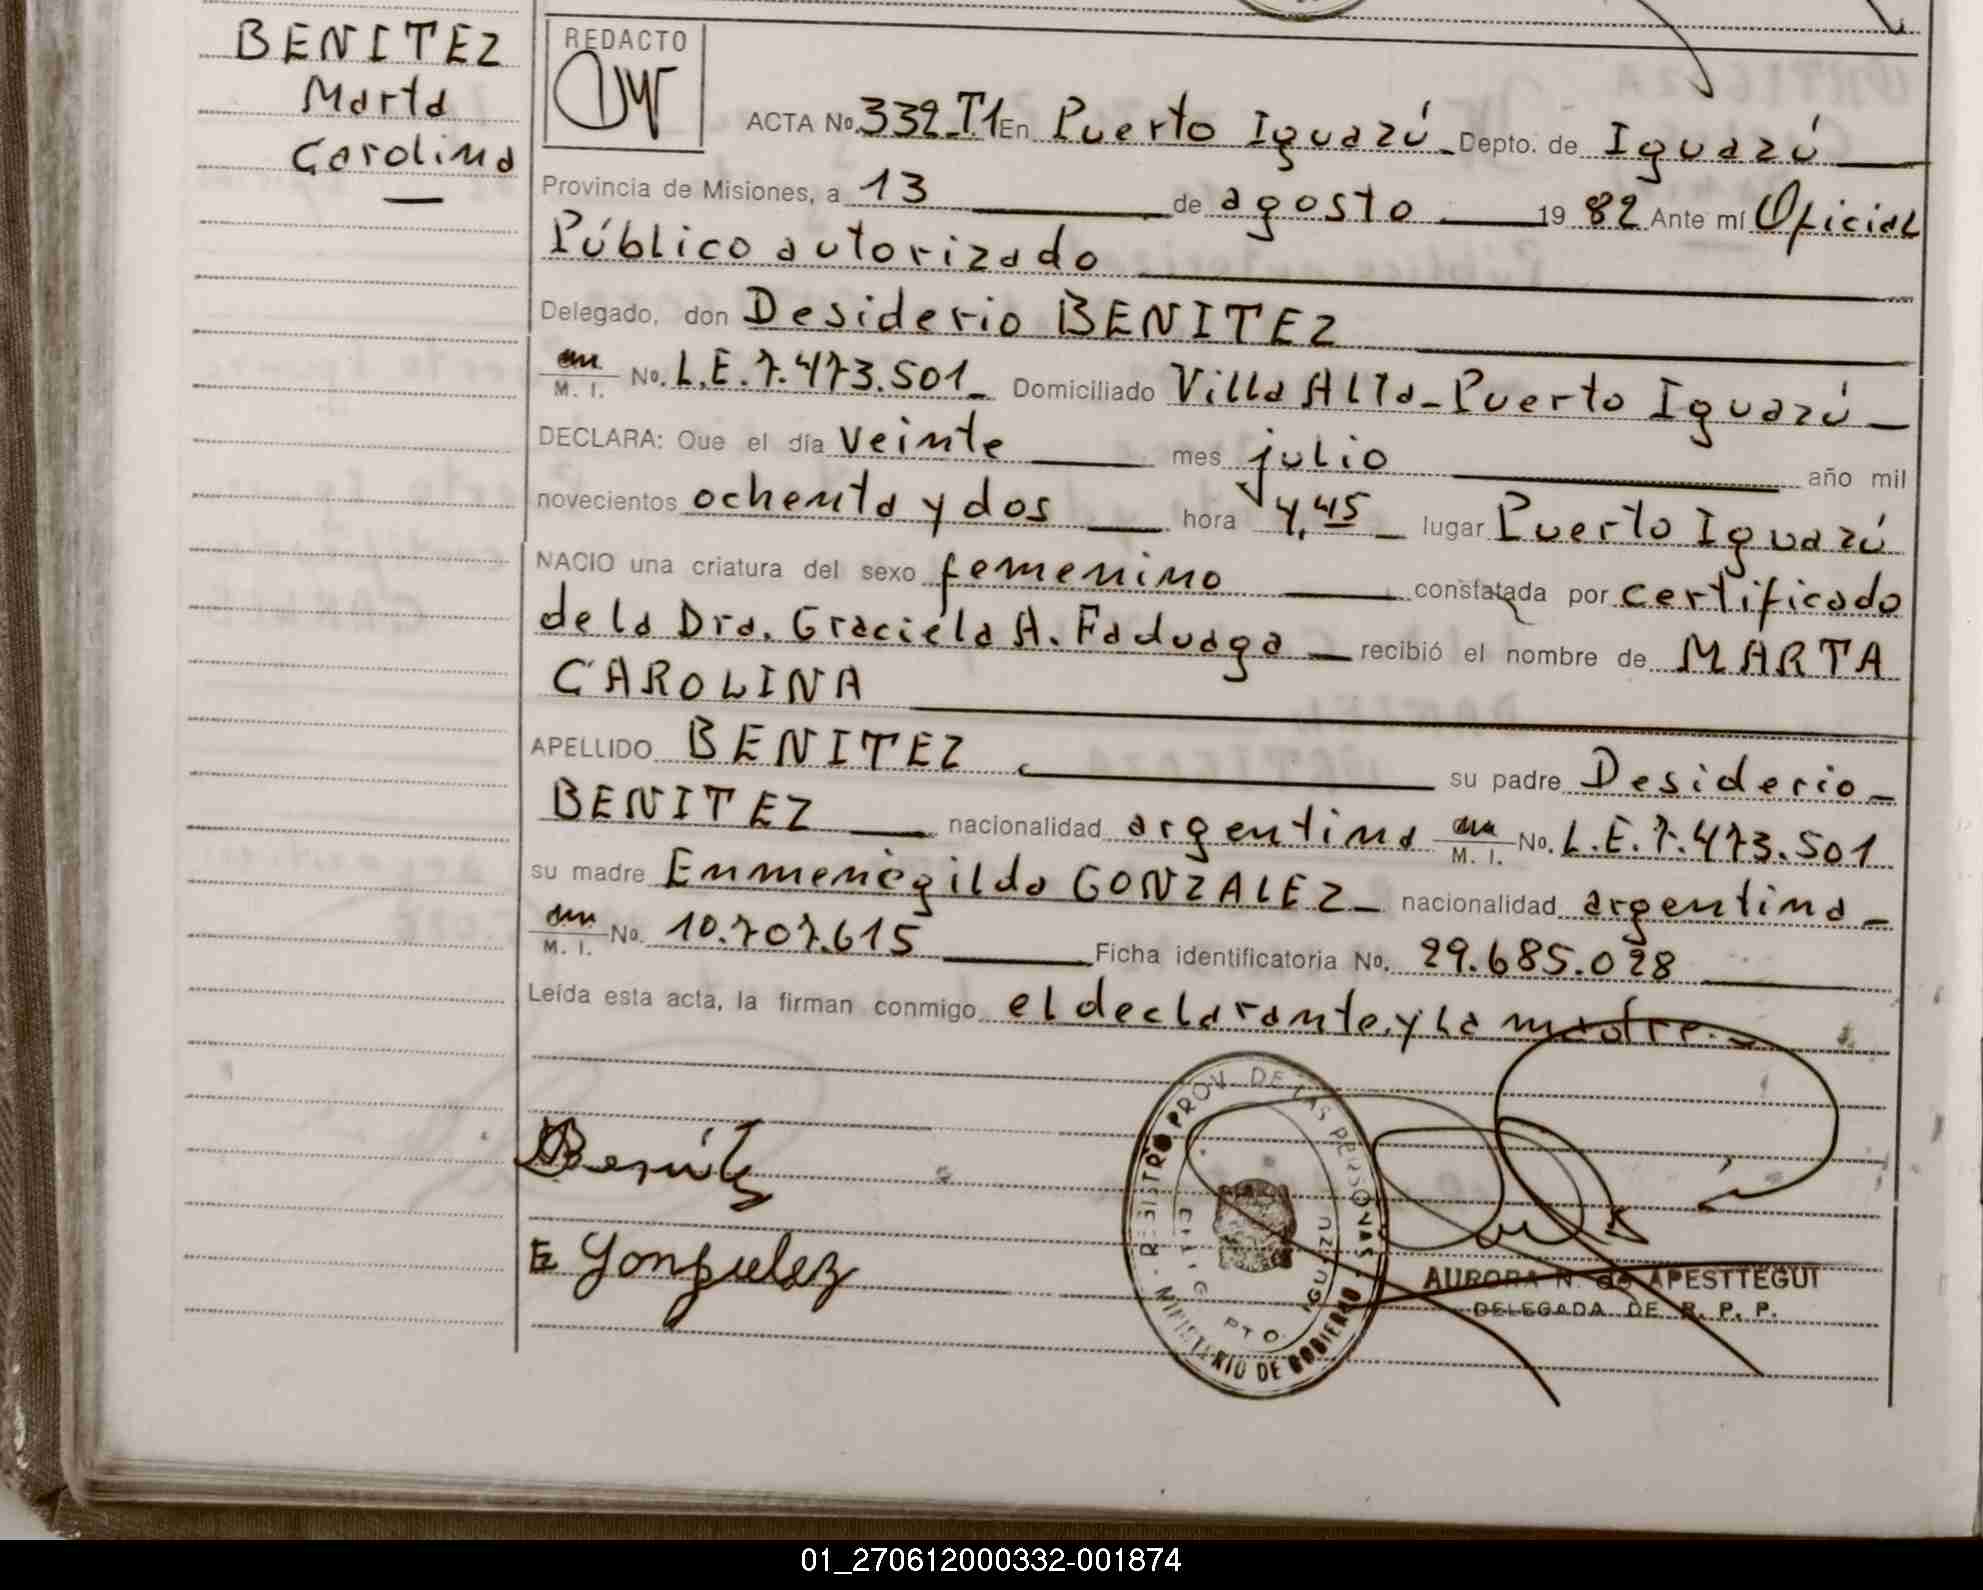 BENITEZ
Marta
Carolina
REDACTO
ACTA No. 332 T1 En Puerto Iguazú Depto. de Iguazú
Provincia de Misiones, a 13 de agosto 19 82 Ante mí Oficial
Público autorizado
Delegado, don Desiderio BENITEZ
M. I. No. L.E. 7.473.501 Domiciliado Villa Alta - Puerto Iguazú
DECLARA: Que el día veinte mes julio año mil
novecientos ochenta y dos hora 4,45 lugar Puerto Iguazú
NACIO una criatura del sexo femenino constatada por certificado
de la Dra. Graciela A. Faduaga recibió el nombre de MARTA
CAROLINA
APELLIDO BENITEZ su padre Desiderio
BENITEZ nacionalidad argentina M. I. No. L.E. 7.473.501
su madre Enmenegilda GONZALEZ nacionalidad argentina
M. I. No. 10.707.615 Ficha identificatoria No. 29.685.028
Leída esta acta, la firman conmigo el declarante, y la madre.
Benitez
E Gonzalez
REGISTRO PROV. DE LAS PERSONAS
MINISTERIO DE GOBIERNO
AURORA N. de APESTTEGUI
DELEGADA DE R. P. P.
01_270612000332-001874